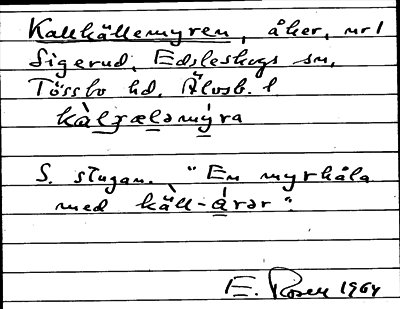 Kallkällemyren, åker, nr 1
Sigerud, Edsleskogs sn,
Tössbo hd, Älvsb. l
kàlʒæləmýra
S. stugan. "En myrhåla
med käll-årər".
E. Rosell 1964